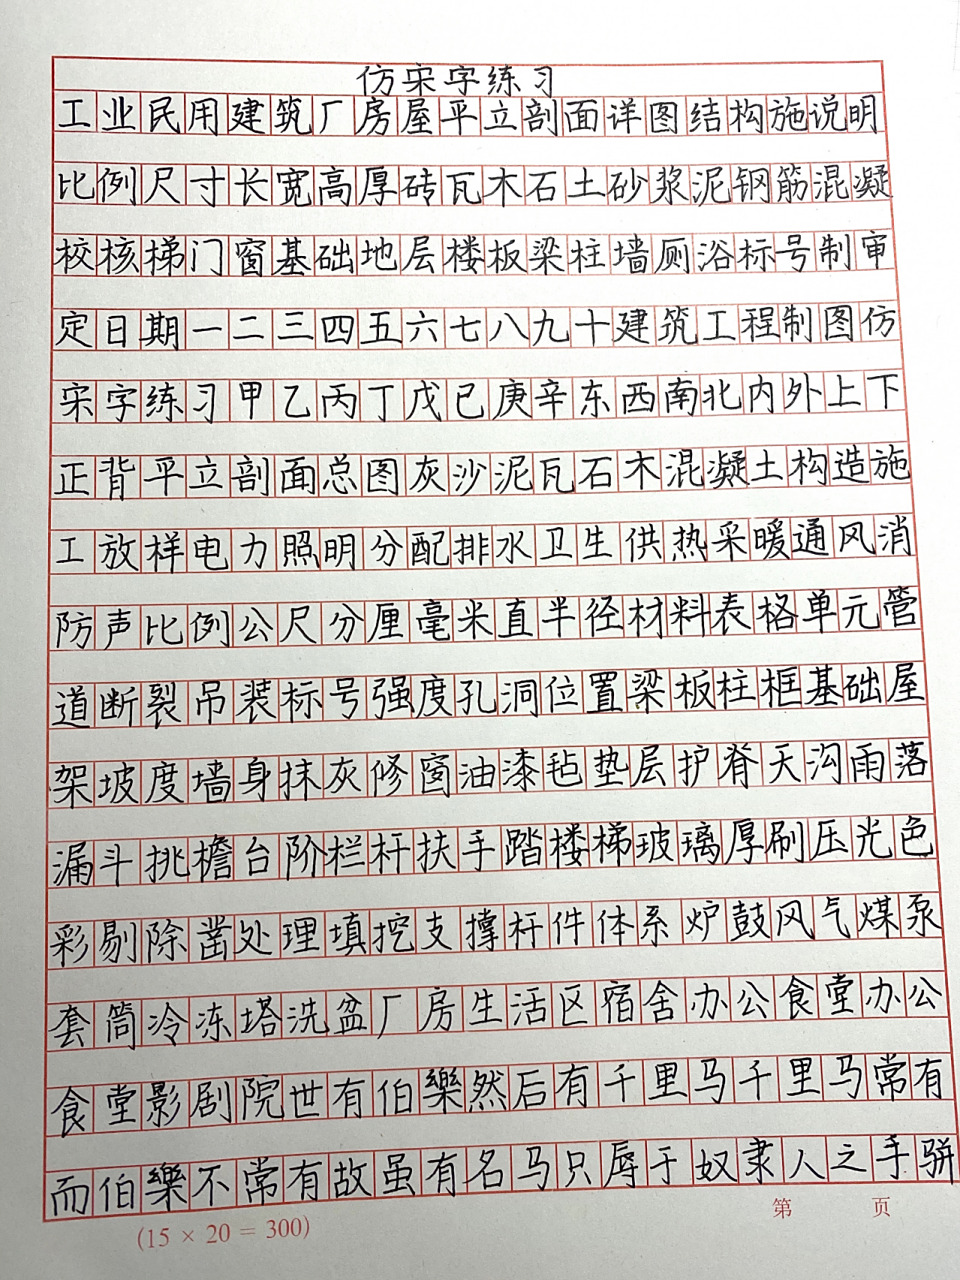 仿宋字练习
工业民用建筑厂房屋平立剖面详图结构施说明
比例尺寸长宽高厚砖瓦木石土砂浆泥钢筋混凝
校核梯门窗基础地层楼板梁柱墙厕浴标号制审
定日期一二三四五六七八九十建筑工程制图仿
宋字练习甲乙丙丁戊已庚辛东西南北内外上下
正背平立剖面总图灰沙泥瓦石木混凝土构造施
工放样电力照明分配排水卫生供热采暖通风消
防声比例公尺分厘毫米直半径材料表格单元管
道断裂吊装标号强度孔洞位置梁板柱框基础屋
架坡度墙身抹灰修窗油漆毡垫层护脊天沟雨落
漏斗挑檐台阶栏杆扶手踏楼梯玻璃厚刷压光色
彩剔除凿处理填挖支撑杆件体系炉鼓风气煤泵
套筒冷冻塔洗盆厂房生活区宿舍办公食堂办公
食堂影剧院世有伯樂然后有千里马千里马常有
而伯樂不常有故虽有名马只辱于奴隶人之手骈
(15 × 20 = 300)
第 页